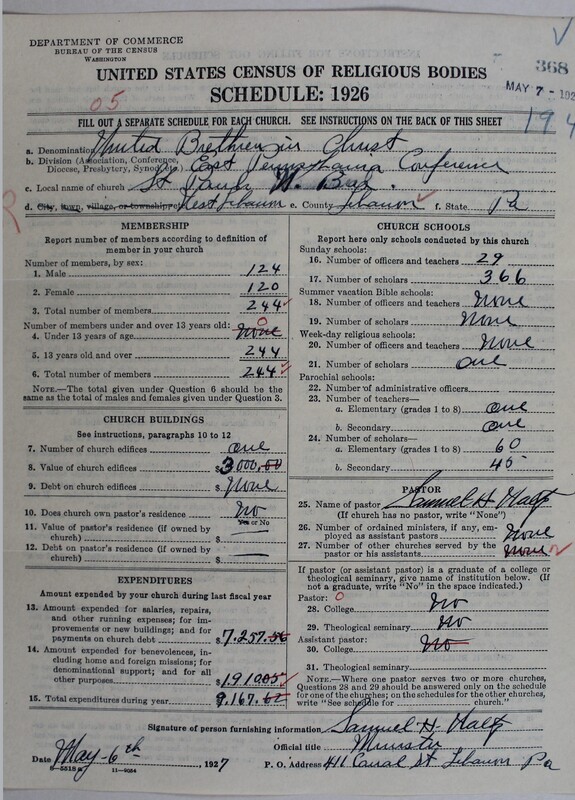 DEPARTMENT OF COMMERCE
BUREAU OF THE CENSUS
WASHINGTON
368
UNITED STATES CENSUS OF RELIGIOUS BODIES
MAY 7 - 192
SCHEDULE: 1926
05
194
FILL OUT A SEPARATE SCHEDULE FOR EACH CHURCH. SEE INSTRUCTIONS ON THE BACK OF THIS SHEET
a. Denomination United Brethren in Christ
b. Division (Association, Conference, Diocese, Presbytery, Synod, etc.) East Pennsylvania Conference
c. Local name of church St Pauls
d. City, town, village, or township West Lebanon e. County Lebanon f. State Pa
MEMBERSHIP
Report number of members according to definition of member in your church
Number of members, by sex:
1. Male 124
2. Female 120
3. Total number of members 244
Number of members under and over 13 years old:
4. Under 13 years of age None 0
5. 13 years old and over 244
6. Total number of members 244
NOTE.—The total given under Question 6 should be the same as the total of males and females given under Question 3.
CHURCH BUILDINGS
See instructions, paragraphs 10 to 12
7. Number of church edifices one
8. Value of church edifices $3000.00
9. Debt on church edifices $ None
10. Does church own pastor's residence? No
Yes or No
11. Value of pastor's residence (if owned by church) $
12. Debt on pastor's residence (if owned by church) $
EXPENDITURES
Amount expended by your church during last fiscal year
13. Amount expended for salaries, repairs, and other running expenses; for improvements or new buildings; and for payments on church debt $7,257.56
14. Amount expended for benevolences, including home and foreign missions; for denominational support; and for all other purposes $191005
15. Total expenditures during year 9,167.62
CHURCH SCHOOLS
Report here only schools conducted by this church
Sunday schools:
16. Number of officers and teachers 29
17. Number of scholars 366
Summer vacation Bible schools:
18. Number of officers and teachers None
19. Number of scholars None
Week-day religious schools:
20. Number of officers and teachers None
21. Number of scholars one
Parochial schools:
22. Number of administrative officers
23. Number of teachers—
a. Elementary (grades 1 to 8) one
b. Secondary one
24. Number of scholars—
a. Elementary (grades 1 to 8) 60
b. Secondary 45
PASTOR
25. Name of pastor Samuel H
(If church has no pastor, write "None")
26. Number of ordained ministers, if any, employed as assistant pastors None
27. Number of other churches served by the pastor or his assistants None
If pastor (or assistant pastor) is a graduate of a college or theological seminary, give name of institution below. (If not a graduate, write "No" in the space indicated.)
Pastor: 0
28. College No
29. Theological seminary No
Assistant pastor:
30. College No
31. Theological seminary
NOTE.—Where one pastor serves two or more churches, Questions 28 and 29 should be answered only on the schedule for one of the churches; on the schedules for the other churches, write "See schedule for church."
Signature of person furnishing information Samuel H.
Official title Minister
Date May-6th, 1927
P. O. Address 411 Canal St Lebanon Pa
8-5518a 11-9084